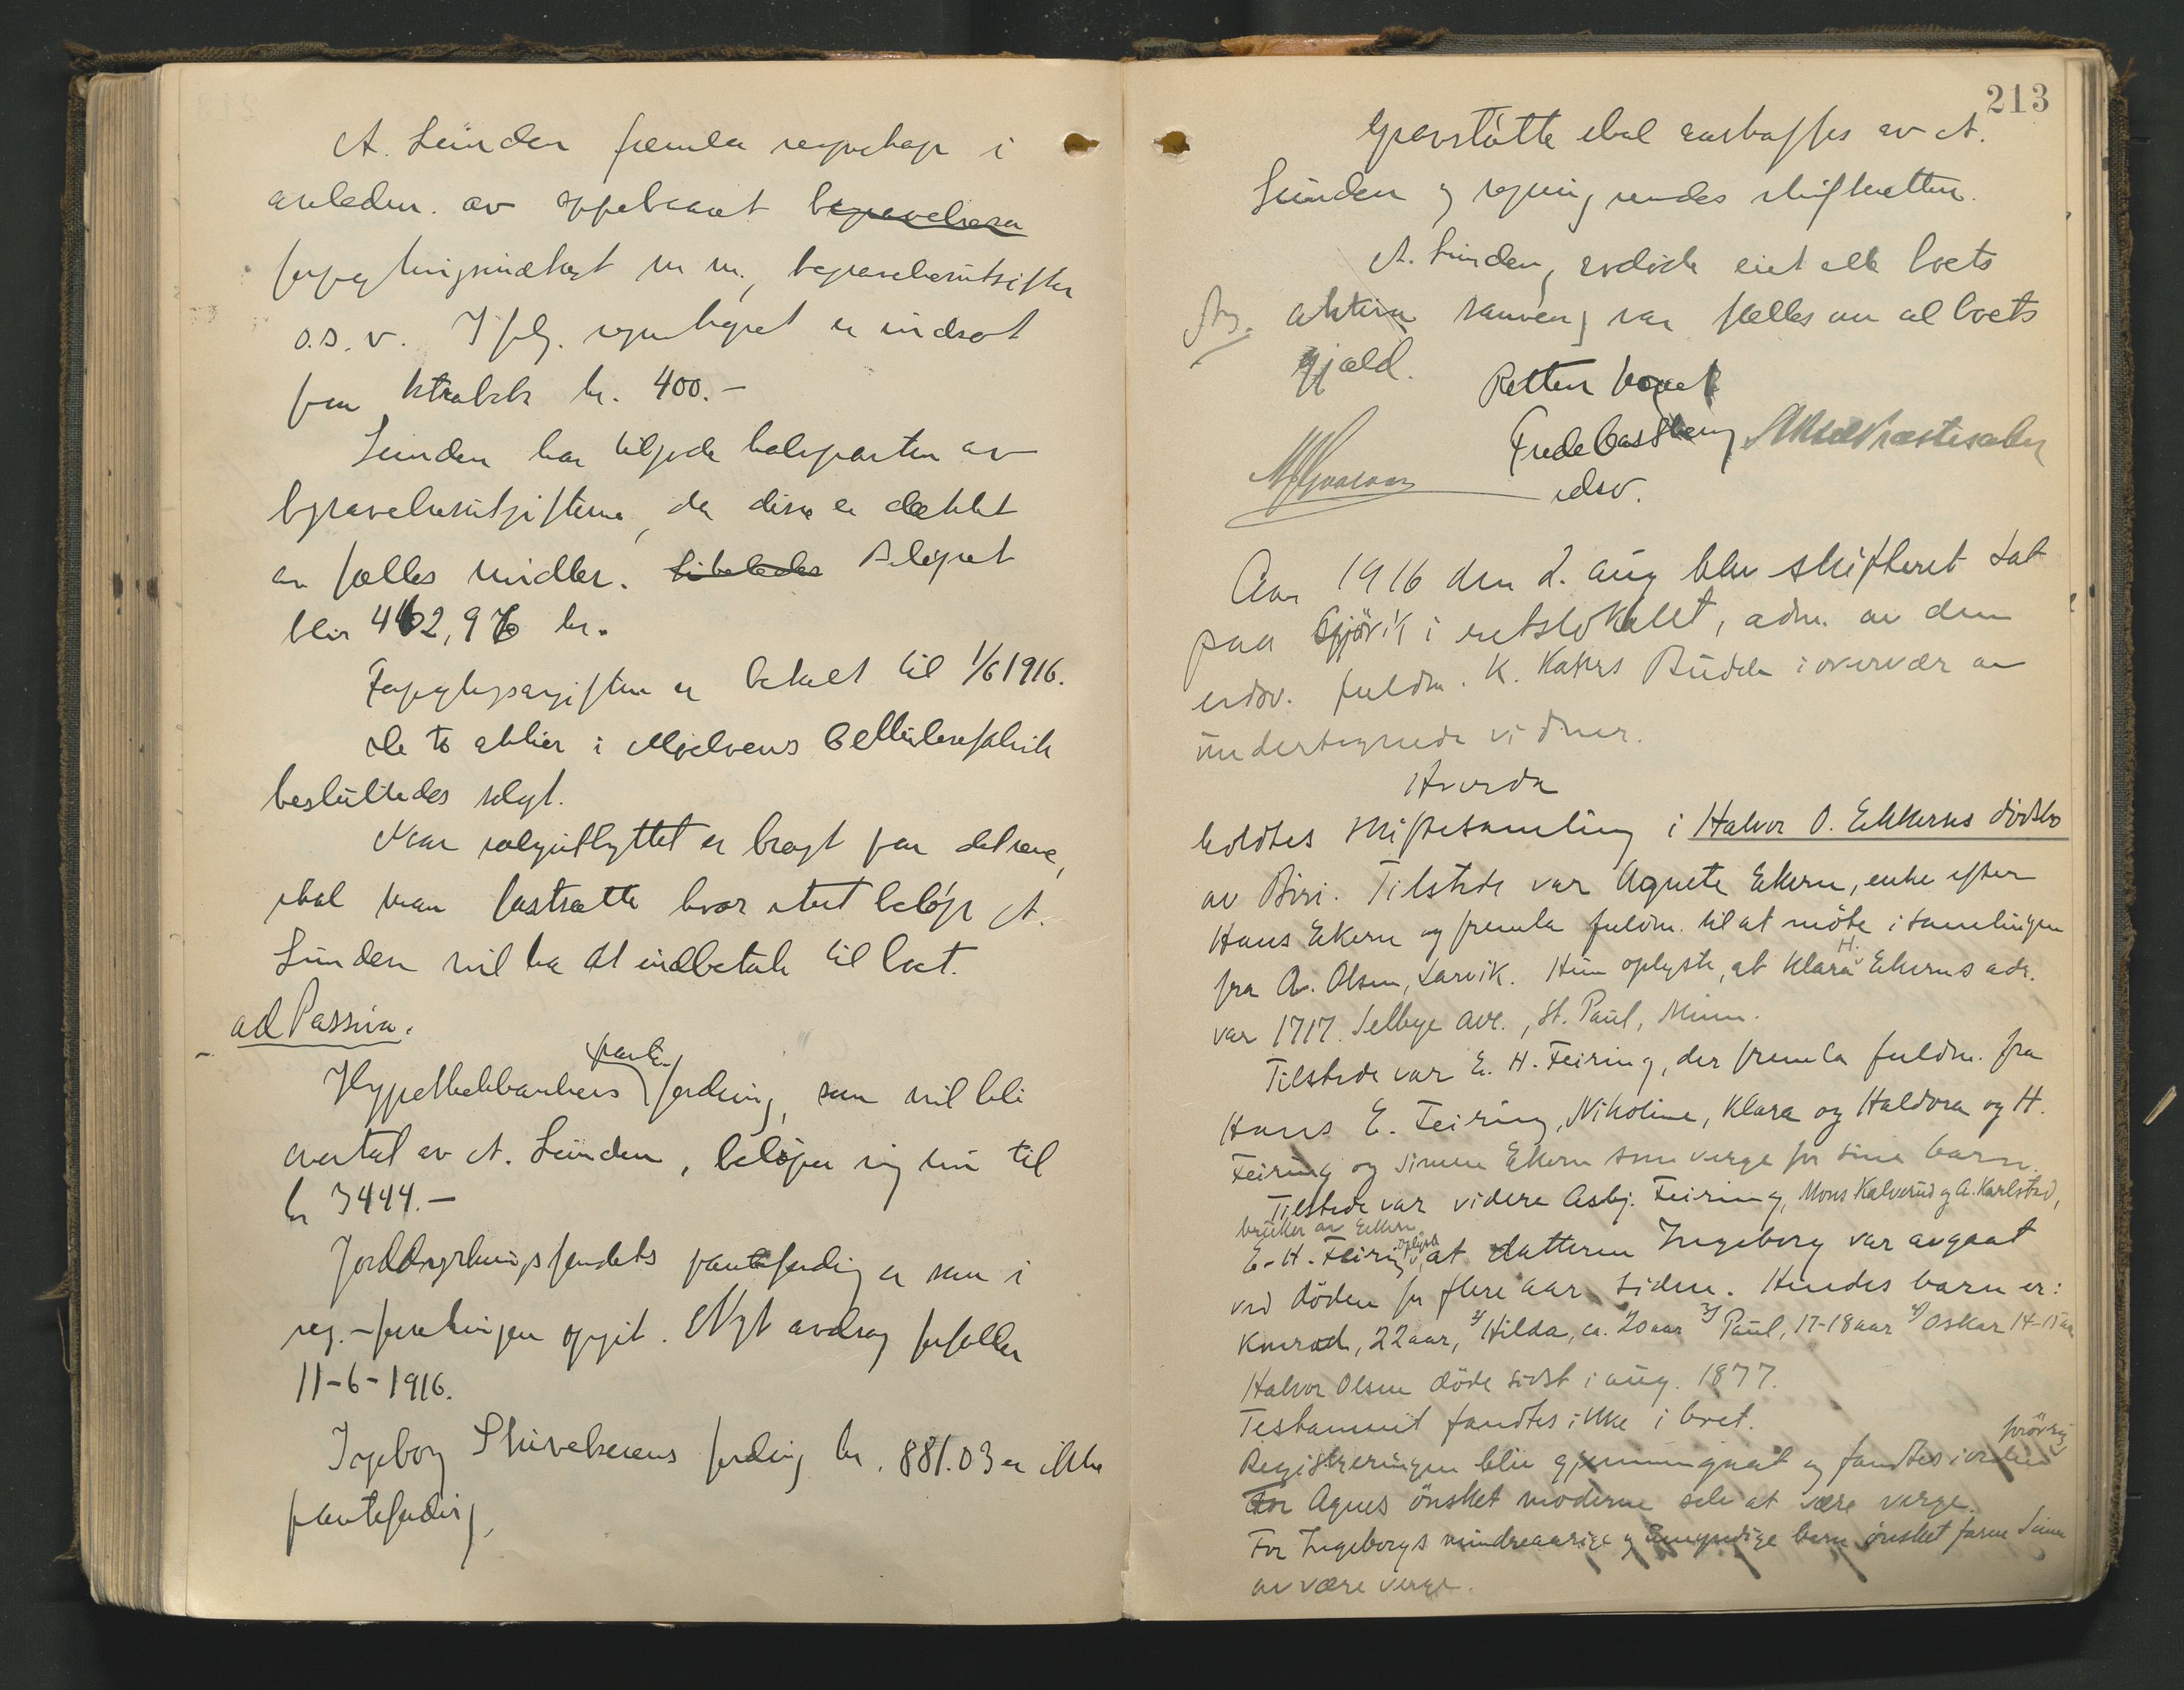 A. Linden fremla regnskap i
anledn. av oppebaaret begravelsesu
forpagtningsindtægt m m., begravelsesutgifter
o.s.v. Ifølg. regnskapet er indsat
paa kr. 400.-
Linden har tilgode halvparten av
begravelsesutgifterne, da disse er dækket
av fælles midler. Likeledes Beløpet
blir 462,96 kr.
Forpagtningsavgiften er betalt til 1/6 1916.
De to aktier i Mjølvens Cellulosefabrik
besluttedes solgt.
Naar salgsutbyttet er bragt paa det rene,
skal man fastsætte hvor stort beløp A.
Linden vil ha at indbetale til boet.
ad Passiva.
Hypothekbankens pante fordring, som vil bli
overtat av A. Linden, beløper sig nu til
kr 3444.-
Jorddyrkningsfondets pantefordring er som i
reg.-forretningen opgit. Nyt avdrag forfalder
11-6-1916.
Ingeborg fordring kr. 881.03 er ikke
pantefordring.
213
Gravstøtte skal anskaffes av A.
Linden og regning sendes skifteretten.
A. Linden, avdøde eiet alle boets
aktiva sammen var fælles om al boets
gjæld.
Retten hævet
edsv.
Aar 1916 den 2. aug blev skifteret sat
paa Gjøvik i retslokalet, adm. av den
edsv. fuldm. K. Kahrs Budde i overvær av
undertegnede vidner.
Hvorda
holdtes skiftesamling i Halvor O. Ekkerns dødsbo
av Biri. Tilstede var Agnete Ekern, enke efter
Hans Ekern og fremla fuldm. til at møte i samlingen
fra A. Olsen, Larvik. Hun oplyste, at Klara H. Ekerns adr.
var 1717 Selbye ave., St. Paul, Minn.
Tilstede var E. H. Feiring, der fremla fuldm. fra
Hans E. Feiring, Nikoline, Klara og Haldora og H.
Feiring og Simen Ekern som verge for sine barn.
Tilstede var videre Asbj. Feiring, Mons Kalverud og A. Karlstad,
bruker av Ekkern
E. H. Feiring oplyste, at datteren Ingeborg var avgaat
ved døden for flere aar siden. Hendes barn er:
Konrad, 22 aar, 2) Hilda, ca. 20 aar 3) Paul, 17-18 aar 4) Oskar 14-15 aar
Halvor Olsen døde sidst i aug. 1877.
Testament fandtes ikke i boet.
Registreringen blev gjennemgaat og fandtes iorden forøvrig
For Agnes ønsket moderen selv at være verge.
For Ingeborgs mindreaarige og umyndige barn ønsket faren Simen
av være verge.